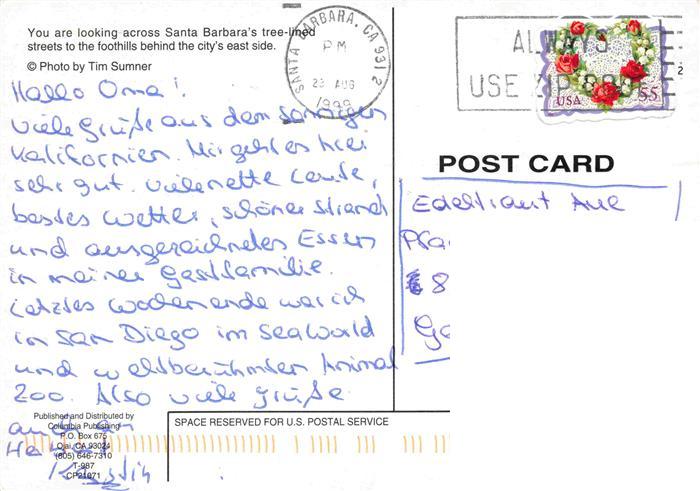 You are looking across Santa Barbara's tree-lined
streets to the foothills behind the city's east side.
© Photo by Tim Sumner
Hallo Oma!
viele Grüße aus dem sonnigen
Kalifornien. Mir geht es hier
sehr gut. Viele nette Leute,
bestes Wetter, schöner Strand
und ausgezeichnetes Essen
in meiner Gastfamilie.
Letztes Wochenende war ich
in San Diego im Seaworld
und weltberühmten Animal
Zoo. Also viele Grüße
Kerstin
Published and Distributed by
Columbia Publishing
P.O. Box 675
Ojai, CA 93024
(805) 646-7310
T-987
CP21071
SANTA BARBARA, CA 931 2
PM
23 AUG
1999
ALWAYS
USE ZIP
USA 55
2
POST CARD
Edeltraut Aue
8
SPACE RESERVED FOR U.S. POSTAL SERVICE